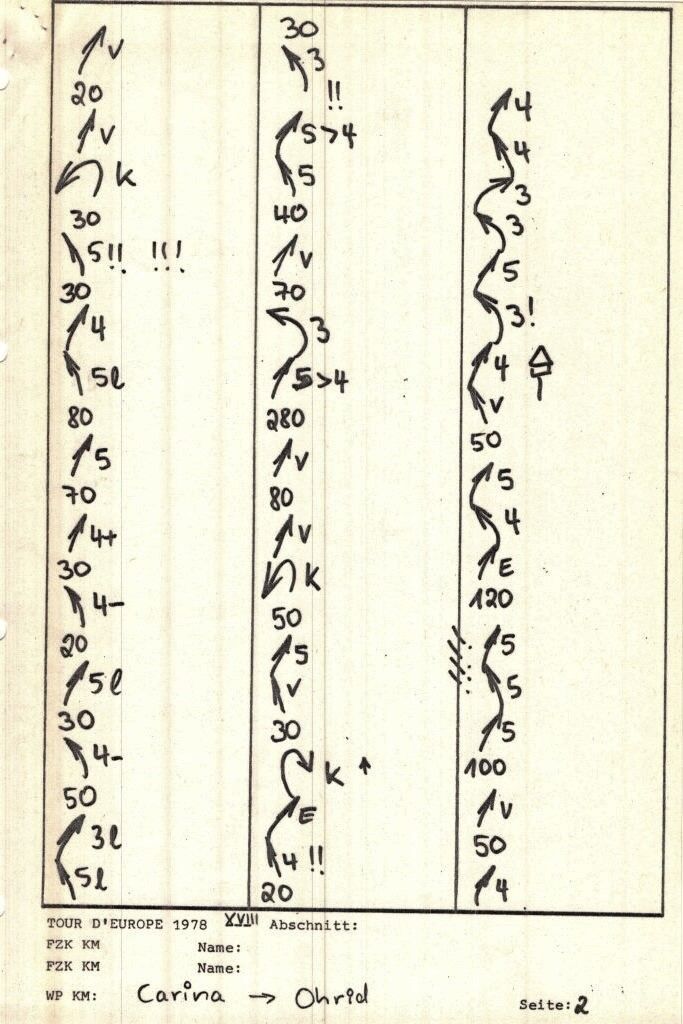 V
20
V
K
30
5!! !!!
30
4
5l
80
5
70
4+
30
4-
20
5l
30
4-
50
3l
5l
30
3
!!
5>4
5
40
V
70
3
5>4
280
V
80
V
K
50
5
V
30
K
E
4!!
20
4
4
3
3
5
3!
4
V
50
5
4
E
120
5
5
5
100
V
50
4
TOUR D'EUROPE 1978 XVIII Abschnitt:
FZK KM Name:
FZK KM Name:
WP KM: Carina → Ohrid Seite: 2